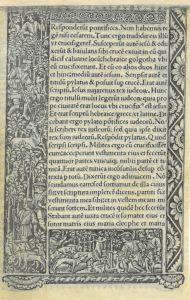 Responderũt pontifices. Non habemus re
gẽ nisi cesarem. Tunc ergo tradidit eis illũ
vt crucifigeret. Susceperũt autẽ iesũ & edu
xerũt & baiulans sibi crucẽ exiuit in eũ q
dicit caluarie locũ hebraice golgotha vbi
eũ crucifixerunt. Et cũ eo alios duos hinc
et hinc mediũ autẽ iesum. Scripsit autẽ et
titulũ pylatus & posuit super crucẽ. Erat autẽ
scriptũ. Iesus nazarenus rex iudeorũ. Hunc
ergo titulũ multi legerũt iudeorũ: quia pro
pe ciuitatẽ erat locus vbi crucifixus est iesus
Et erat scriptũ hebraice, grece, et latine. Di
cebant ergo pylato pontifices iudeorũ. No
li scribere rex iudeorũ: sed quia ipse dixit
rex sum iudeorũ. Respõdit pylatus. Quod
scripsi scripsi. Milites ergo cũ crucifixissẽt
eum: acceperunt vestimenta eius et fecerũt
quattuor partes vnicuiq militi partẽ et tu
nicã. Erat autẽ tunica incõsutilis desup cõ
texta p totũ. Dixerũt ergo adinuicem. Nõ
scindamus eam: sed sortiamur de illa cuius
sit vt scriptura impleret dicens. partiti sunt
vestimenta mea sibi et in vestem meam mi
serunt sortem. Et milites quidẽ hec fecerũt
Stabant autẽ iuxta crucẽ iesu mater eius et
soror matris eius maria cleophe et maria